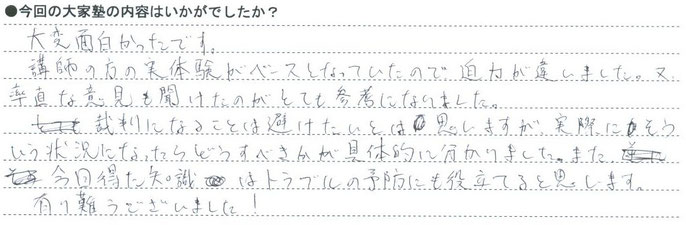 ●今回の大家塾の内容はいかがでしたか？
大変面白かったです。
講師の方の実体験がベースとなっていたので迫力が違いました。又、
率直な意見も聞けたのがとても参考になりました。
裁判になることは避けたいとは思いますが、実際にそう
いう状況になったらどうすべきかが具体的に分かりました。また、
今回得た知識はトラブルの予防にも役立てると思います。
有り難うございました！